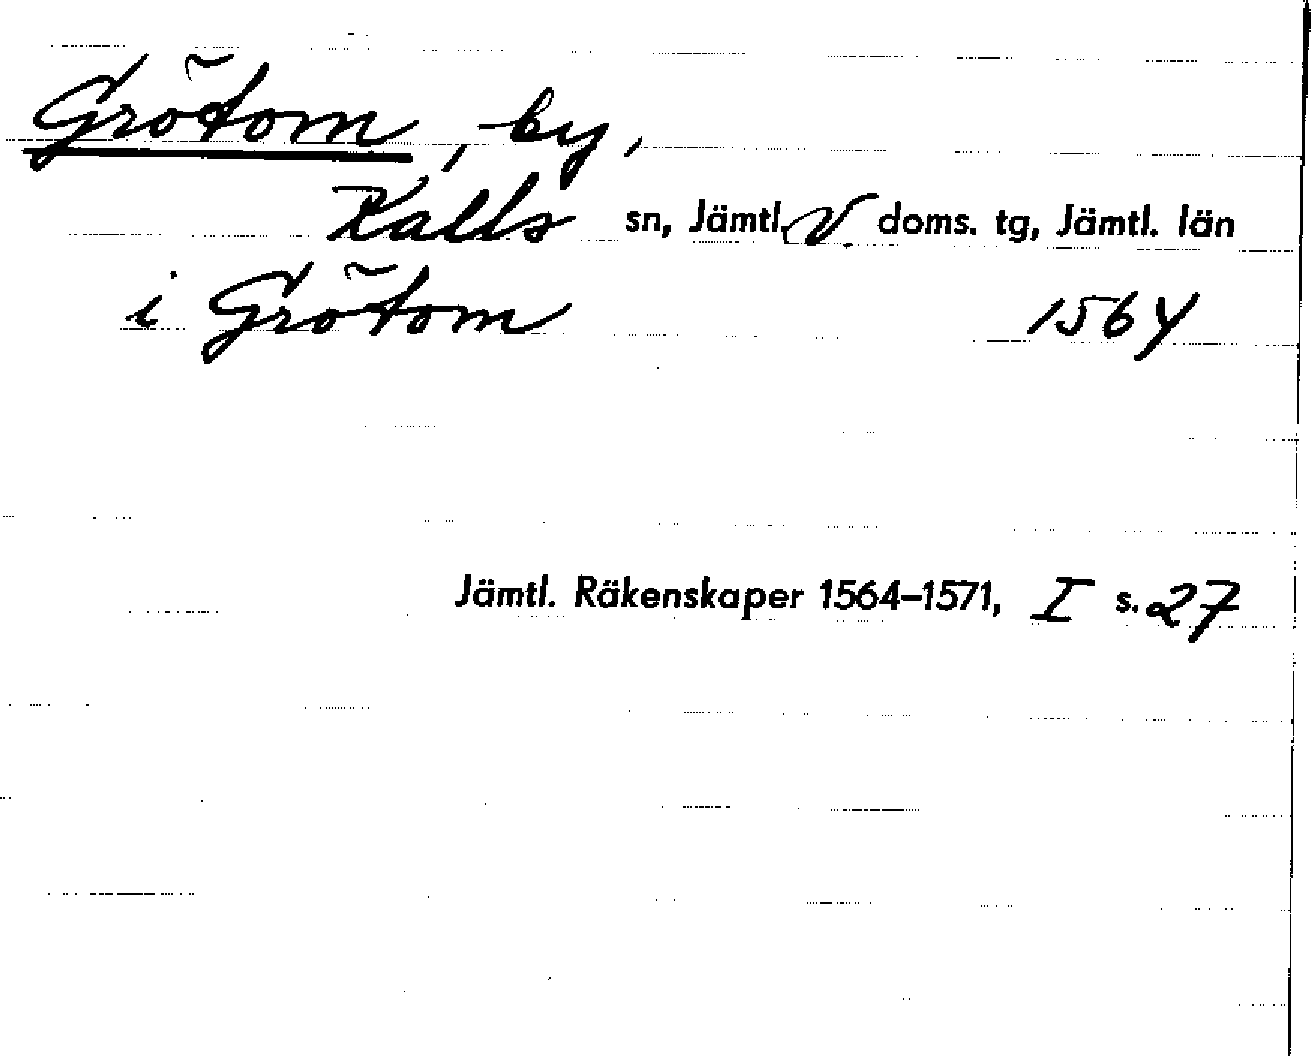 Grötom, by,
Kalls sn, Jämtl. V doms. tg, Jämtl. län
i Grötom 1564
Jämtl. Räkenskaper 1564–1571, I s. 27